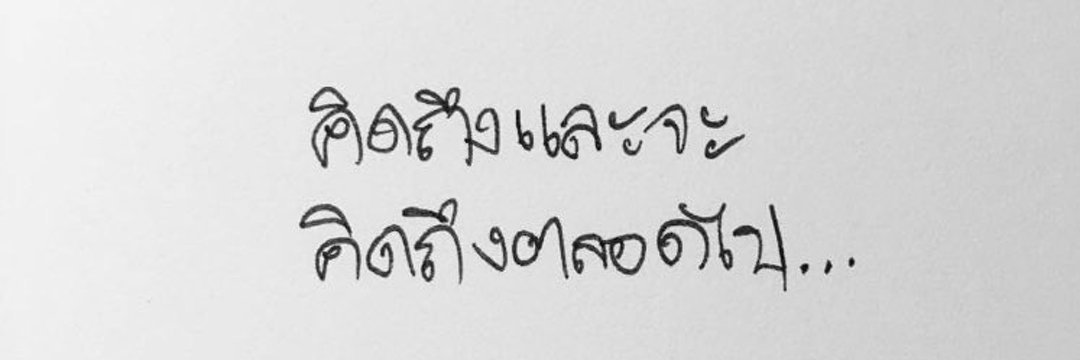 คิดถึงและจะ
คิดถึงตลอดไป...